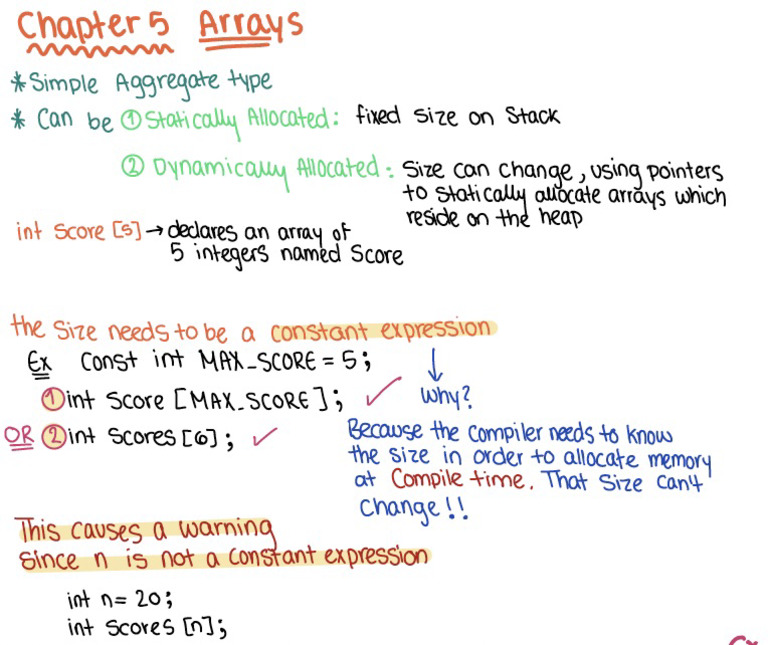 Chapter 5 Arrays
* Simple Aggregate type
* Can be ① Statically Allocated: fixed size on Stack
② Dynamically Allocated: Size can change, using pointers
to statically allocate arrays which
reside on the heap
int Score [5] → declares an array of
5 integers named Score
the Size needs to be a constant expression
Ex Const int MAX_SCORE = 5;
① int Score [MAX_SCORE]; ✓
Why?
OR ② int Scores [6]; ✓
Because the Compiler needs to know
the size in order to allocate memory
at Compile time. That Size can't
Change!!
This causes a warning
Since n is not a constant expression
int n= 20;
int Scores [n];